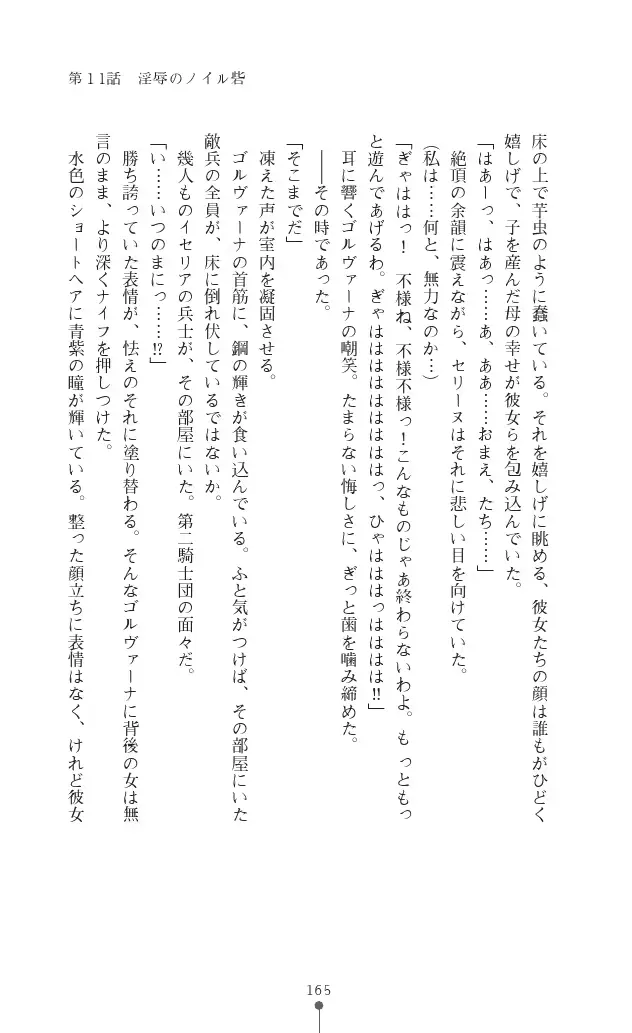 第11話　淫辱のノイル砦
床の上で芋虫のように蠢いている。それを嬉しげに眺める、彼女たちの顔は誰もがひどく
嬉しげで、子を産んだ母の幸せが彼女らを包み込んでいた。
「はあーっ、はあっ……あ、ああ……おまえ、たち……」
　絶頂の余韻に震えながら、セリーヌはそれに悲しい目を向けていた。
（私は……何と、無力なのか…）
「ぎゃははっ！　不様ね、不様不様っ！こんなものじゃあ終わらないわよ。もっともっ
と遊んであげるわ。ぎゃはははははははははっ、ひゃはははっはははは‼」
　耳に響くゴルヴァーナの嘲笑。たまらない悔しさに、ぎっと歯を噛み締めた。
　――その時であった。
「そこまでだ」
　凍えた声が室内を凝固させる。
　ゴルヴァーナの首筋に、鋼の輝きが食い込んでいる。ふと気がつけば、その部屋にいた
敵兵の全員が、床に倒れ伏しているではないか。
　幾人ものイセリアの兵士が、その部屋にいた。第二騎士団の面々だ。
「い……いつのまにっ……⁉」
　勝ち誇っていた表情が、怯えのそれに塗り替わる。そんなゴルヴァーナに背後の女は無
言のまま、より深くナイフを押しつけた。
　水色のショートヘアに青紫の瞳が輝いている。整った顔立ちに表情はなく、けれど彼女
165